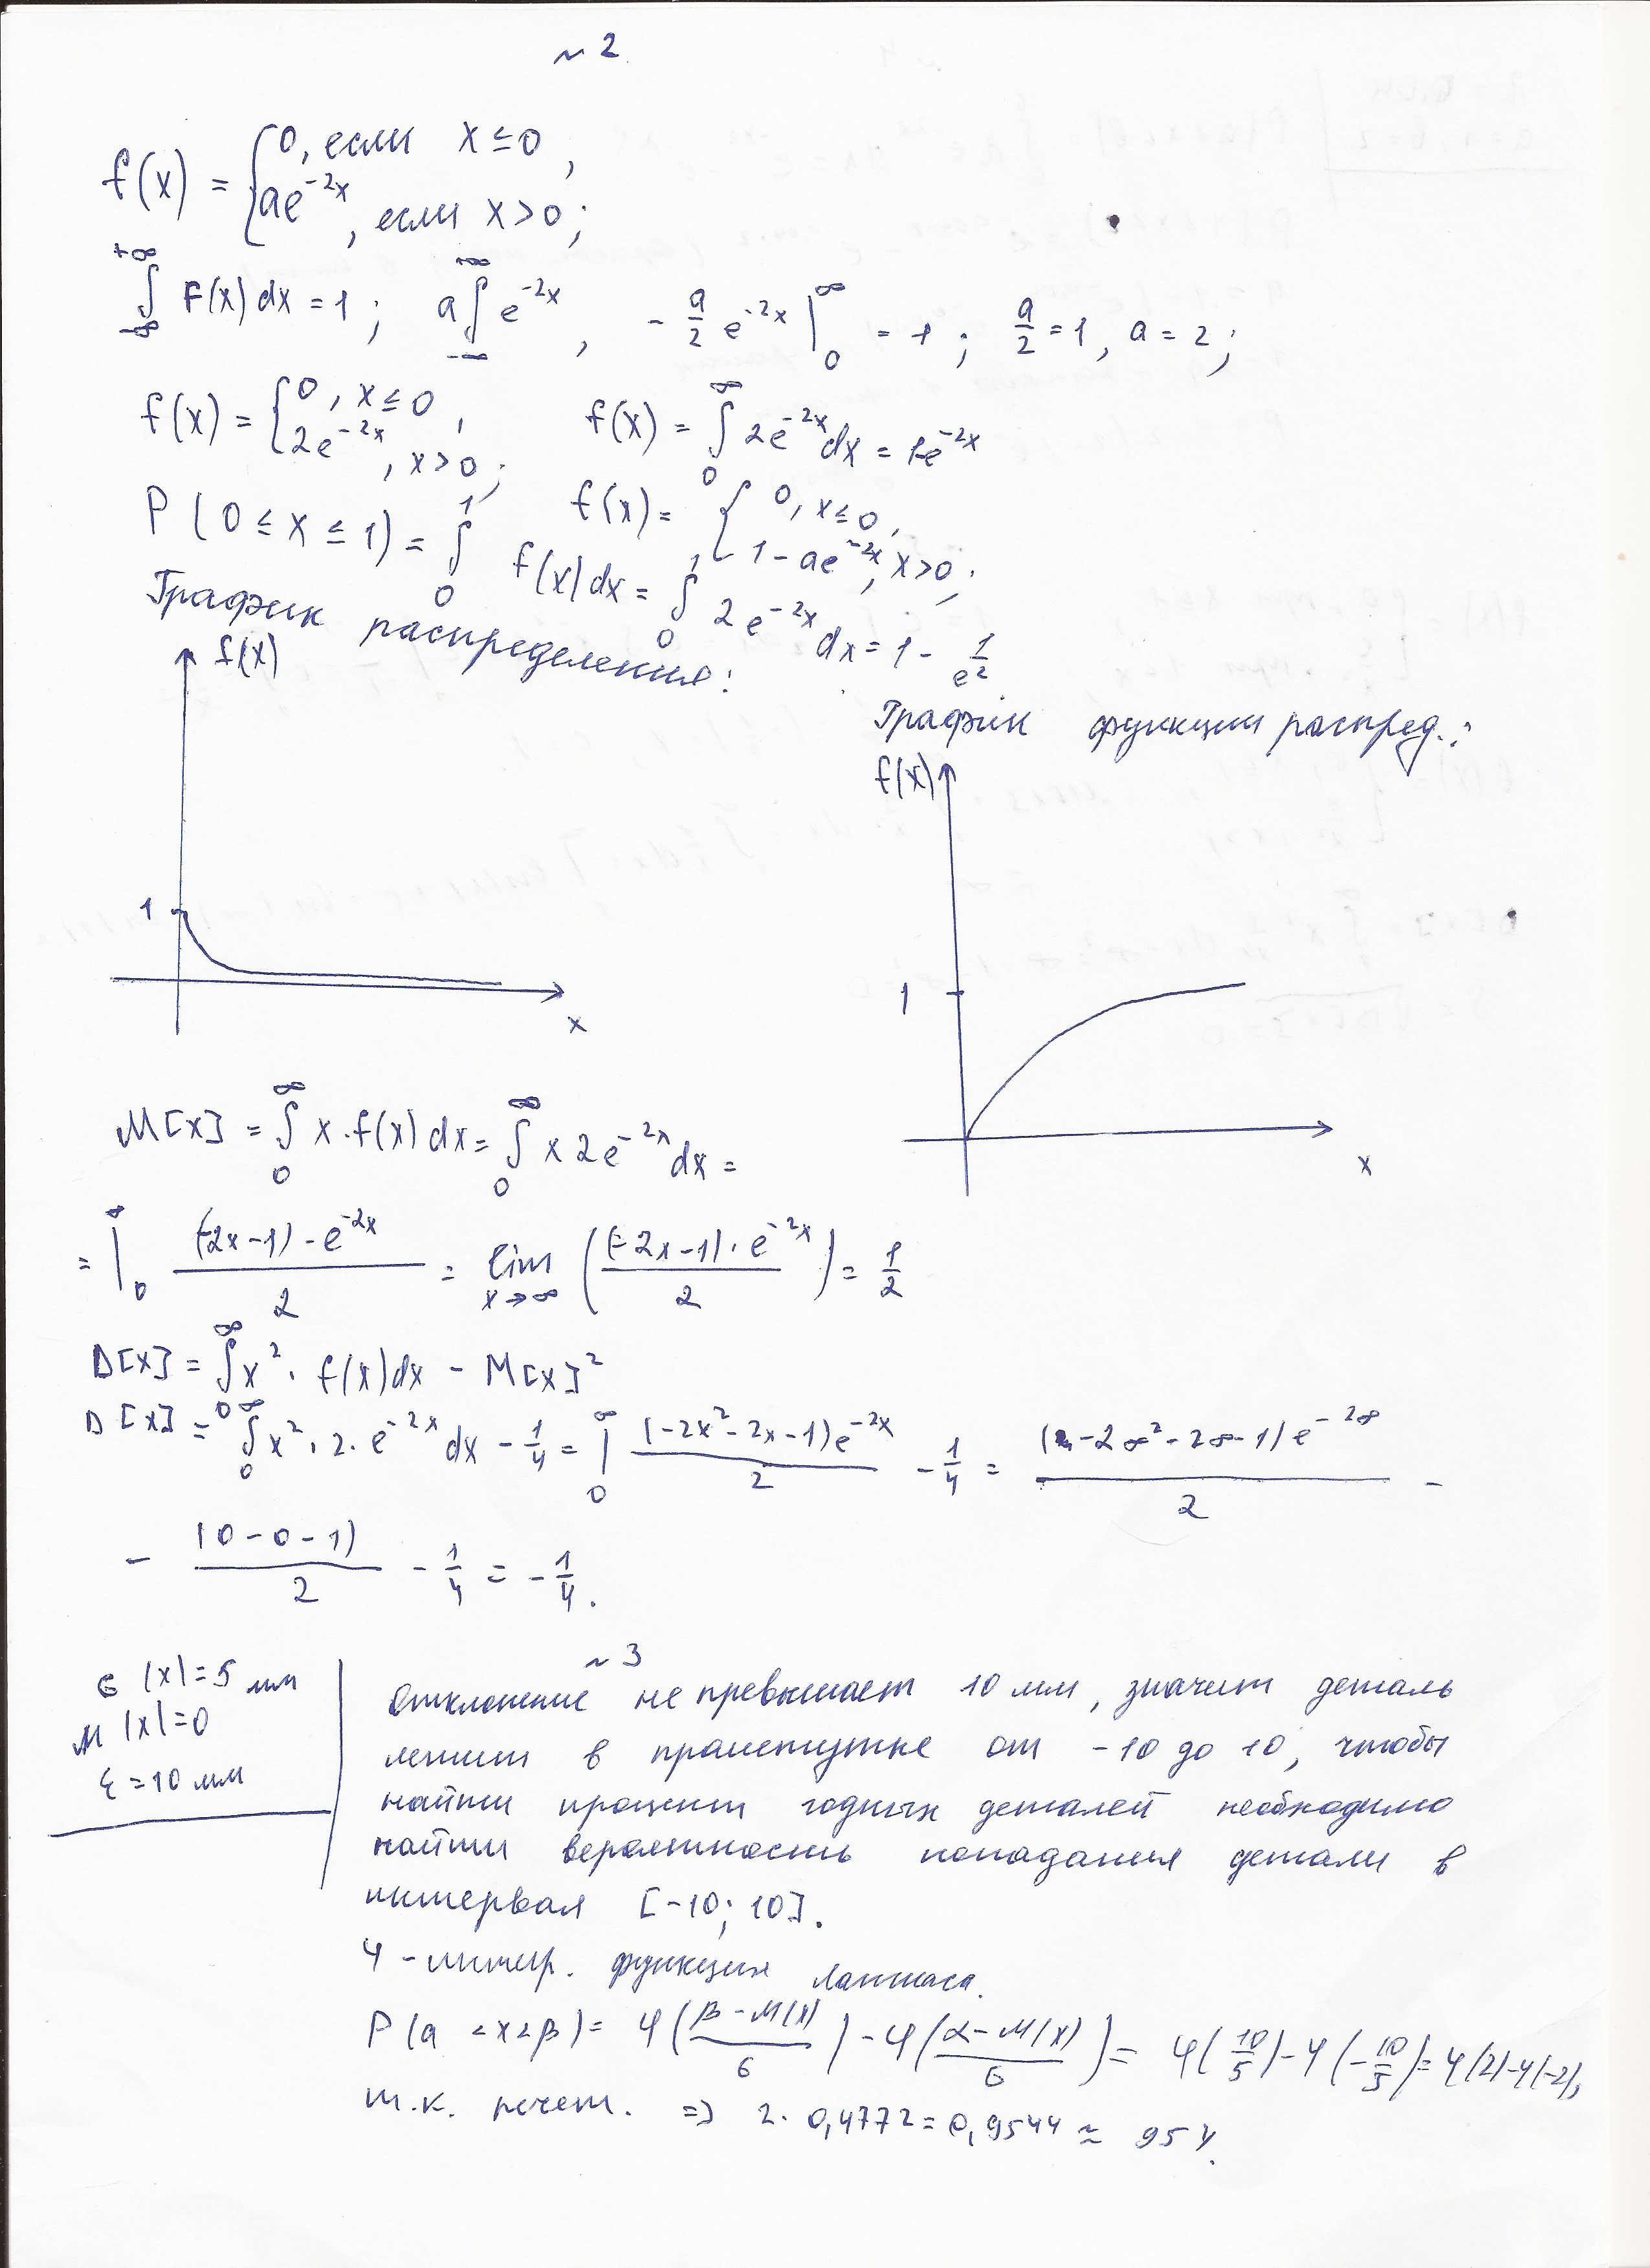 ~ 2
f(x) = { 0, если x ≤ 0,
ae^{-2x}, если x > 0;
∫_{-∞}^{+∞} F(x) dx = 1; a ∫_{-∞}^{+∞} e^{-2x}, - a/2 e^{-2x} |_0^∞ = 1; a/2 = 1, a = 2;
f(x) = { 0, x ≤ 0, f(x) = ∫_0^∞ 2e^{-2x} dx = 1-e^{-2x}
2e^{-2x}, x > 0;
f(x) = { 0, x ≤ 0,
1 - ae^{-2x}, x > 0;
P (0 ≤ x ≤ 1) = ∫_0^1 f(x) dx = ∫_0^1 2e^{-2x} dx = 1 - 1/e^2
График распределения:
График функции распред.:
f(x)
1
x
f(x)
1
x
M[x] = ∫_0^∞ x · f(x) dx = ∫_0^∞ x 2e^{-2x} dx =
= |_0^∞ (-2x-1) · e^{-2x} / 2 = lim_{x→∞} ((-2x-1) · e^{-2x} / 2) = 1/2
D[x] = ∫_0^∞ x^2 · f(x) dx - M[x]^2
D[x] = ∫_0^∞ x^2 · 2 · e^{-2x} dx - 1/4 = |_0^∞ (-2x^2-2x-1)e^{-2x} / 2 - 1/4 = (-2∞^2-2∞-1)e^{-2∞} / 2 -
- (0-0-1) / 2 - 1/4 = - 1/4.
~ 3
σ (x) = 5 мм
M (x) = 0
ε = 10 мм
Отклонение не превышает 10 мм, значит деталь
лежит в промежутке от -10 до 10, чтобы
найти процент годных деталей необходимо
найти вероятность попадания детали в
интервал [-10; 10].
φ - интегр. функция Лапласа.
P (a < x < β) = φ((β - M(x)) / σ) - φ((α - M(x)) / σ) = φ(10/5) - φ(-10/5) = φ(2) - φ(-2),
т.к. нечет. => 2 · 0,4772 = 0,9544 ≈ 95%.